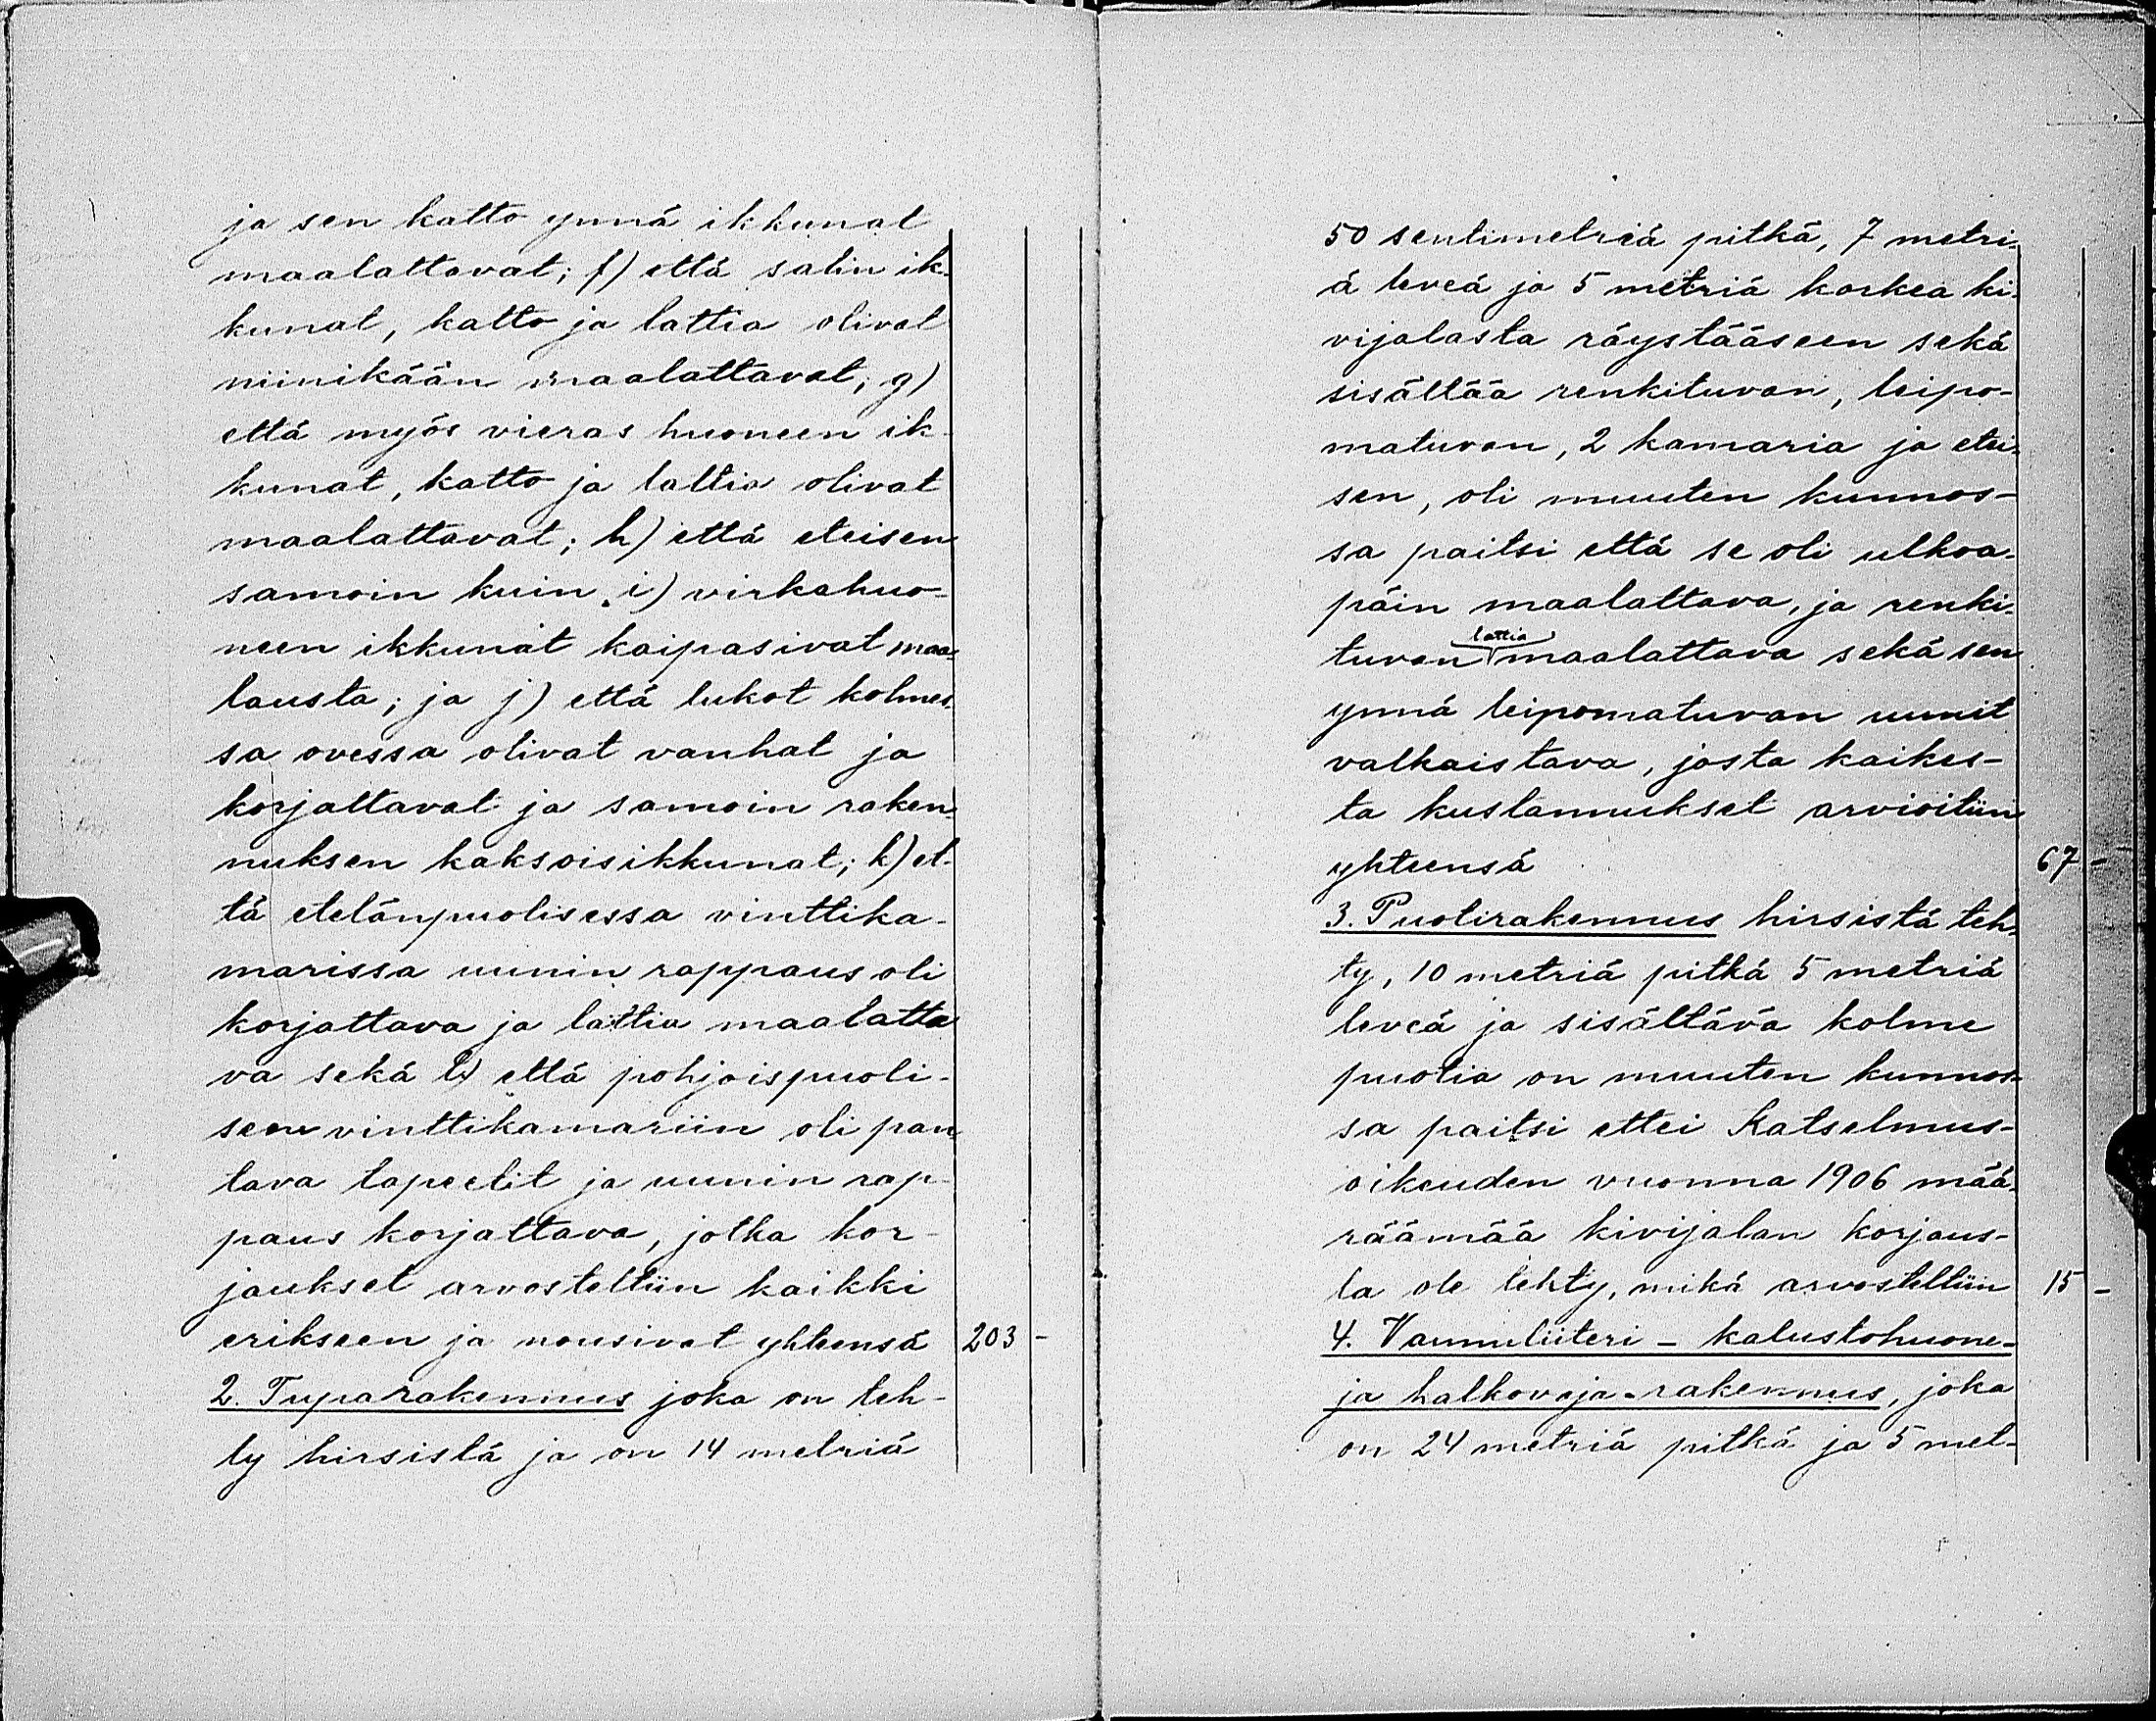 ja sen katto ynnä ikkunat
maalattavat; f) että salin ik-
kunat, katto ja lattia olivat
niinikään maalattavat; g)
että myös vieras huoneen ik-
kunat, katto ja lattia olivat
maalattavat; h) että eteisen
samoin kuin i) virkahuo-
neen ikkunat kaipasivat maa-
lausta; ja j) että lukot kolmes-
sa ovessa olivat vanhat ja
korjattavat ja samoin raken-
nuksen kaksoisikkunat; k) et-
tä etelänpuolisessa vinttika-
marissa uunin rappaus oli
korjattava ja lattia maalatta
va sekä l) että pohjoispuoli-
seen vinttikamariin oli pan-
tava tapeetit ja uunin rap-
paus korjattava, jotka kor-
jaukset arvosteltiin kaikki
erikseen ja nousivat yhteensä 203 -
2. Tuparakennus joka on teh-
ty hirsistä ja on 14 metriä
50 sentimetriä pitkä, 7 metri-
ä leveä ja 5 metriä korkea ki-
vijalasta räystääseen sekä
sisältää renkituvan, leipo-
matuvan, 2 kamaria ja etei-
sen, oli muuten kunnos-
sa paitsi että se oli ulkoa-
päin maalattava, ja renki-
tuvan lattia maalattava sekä sen
ynnä leipomatuvan uunit
valkaistava, josta kaikes-
ta kustannukset arvioitiin
yhteensä 67 -
3. Puotirakennus hirsistä teh-
ty, 10 metriä pitkä 5 metriä
leveä ja sisältävä kolme
puotia on muuten kunnos-
sa paitsi ettei Katselmus-
oikeuden vuonna 1906 mää-
räämää kivijalan korjaus-
ta ole tehty, mikä arvosteltiin 15 -
4. Vaunuliiteri - kalustohuone-
ja halkovaja-rakennus, joka
on 24 metriä pitkä ja 5 met-